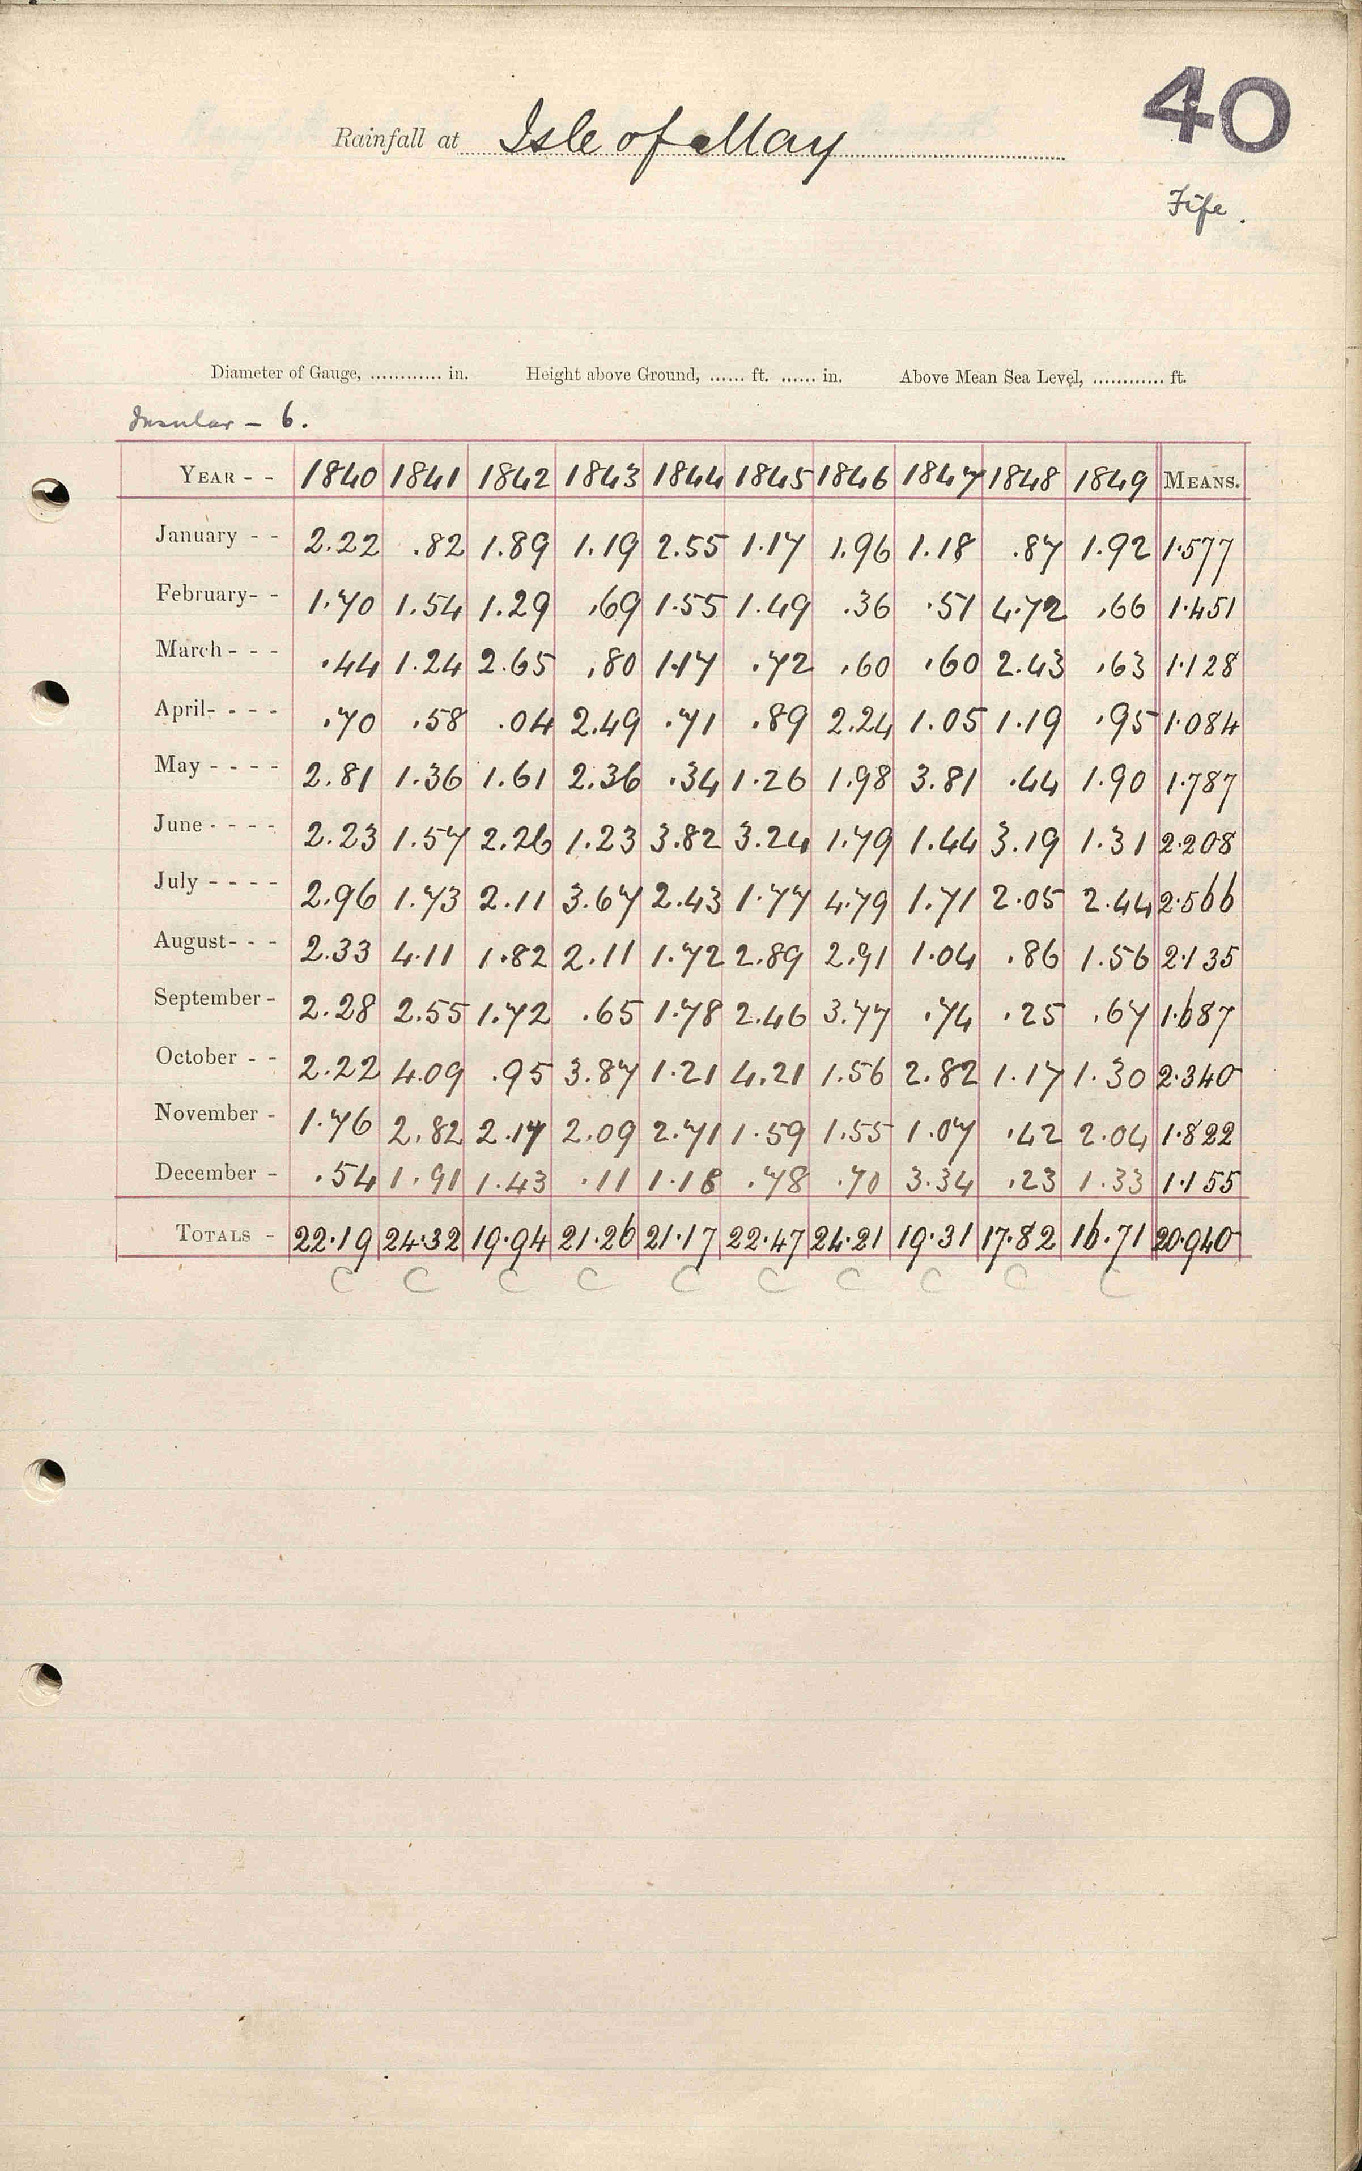 40
Rainfall at Isle of May
Fife.
Diameter of Gauge, ............ in. Height above Ground, ...... ft. ...... in. Above Mean Sea Level, ............ ft.
Insular – 6.
YEAR - - 1840 1841 1842 1843 1844 1845 1846 1847 1848 1849 MEANS.
January - - 2.22 .82 1.89 1.19 2.55 1.17 1.96 1.18 .87 1.92 1.577
February- - 1.70 1.54 1.29 .69 1.55 1.49 .36 .51 4.72 .66 1.451
March - - - .44 1.24 2.65 .80 1.17 .72 .60 .60 2.43 .63 1.128
April- - - - .70 .58 .04 2.49 .71 .89 2.24 1.05 1.19 .95 1.084
May - - - - 2.81 1.36 1.61 2.36 .34 1.26 1.98 3.81 .44 1.90 1.787
June - - - - 2.23 1.57 2.26 1.23 3.82 3.24 1.79 1.44 3.19 1.31 2.208
July - - - - 2.96 1.73 2.11 3.67 2.43 1.77 4.79 1.71 2.05 2.44 2.566
August- - - 2.33 4.11 1.82 2.11 1.72 2.89 2.91 1.04 .86 1.56 2.135
September - 2.28 2.55 1.72 .65 1.78 2.46 3.77 .74 .25 .67 1.687
October - - 2.22 4.09 .95 3.87 1.21 4.21 1.56 2.82 1.17 1.30 2.340
November - 1.76 2.82 2.17 2.09 2.71 1.59 1.55 1.07 .42 2.04 1.822
December - .54 1.91 1.43 .11 1.18 .78 .70 3.34 .23 1.33 1.155
TOTALS - 22.19 24.32 19.94 21.26 21.17 22.47 24.21 19.31 17.82 16.71 20.940
C C C C C C C C C C